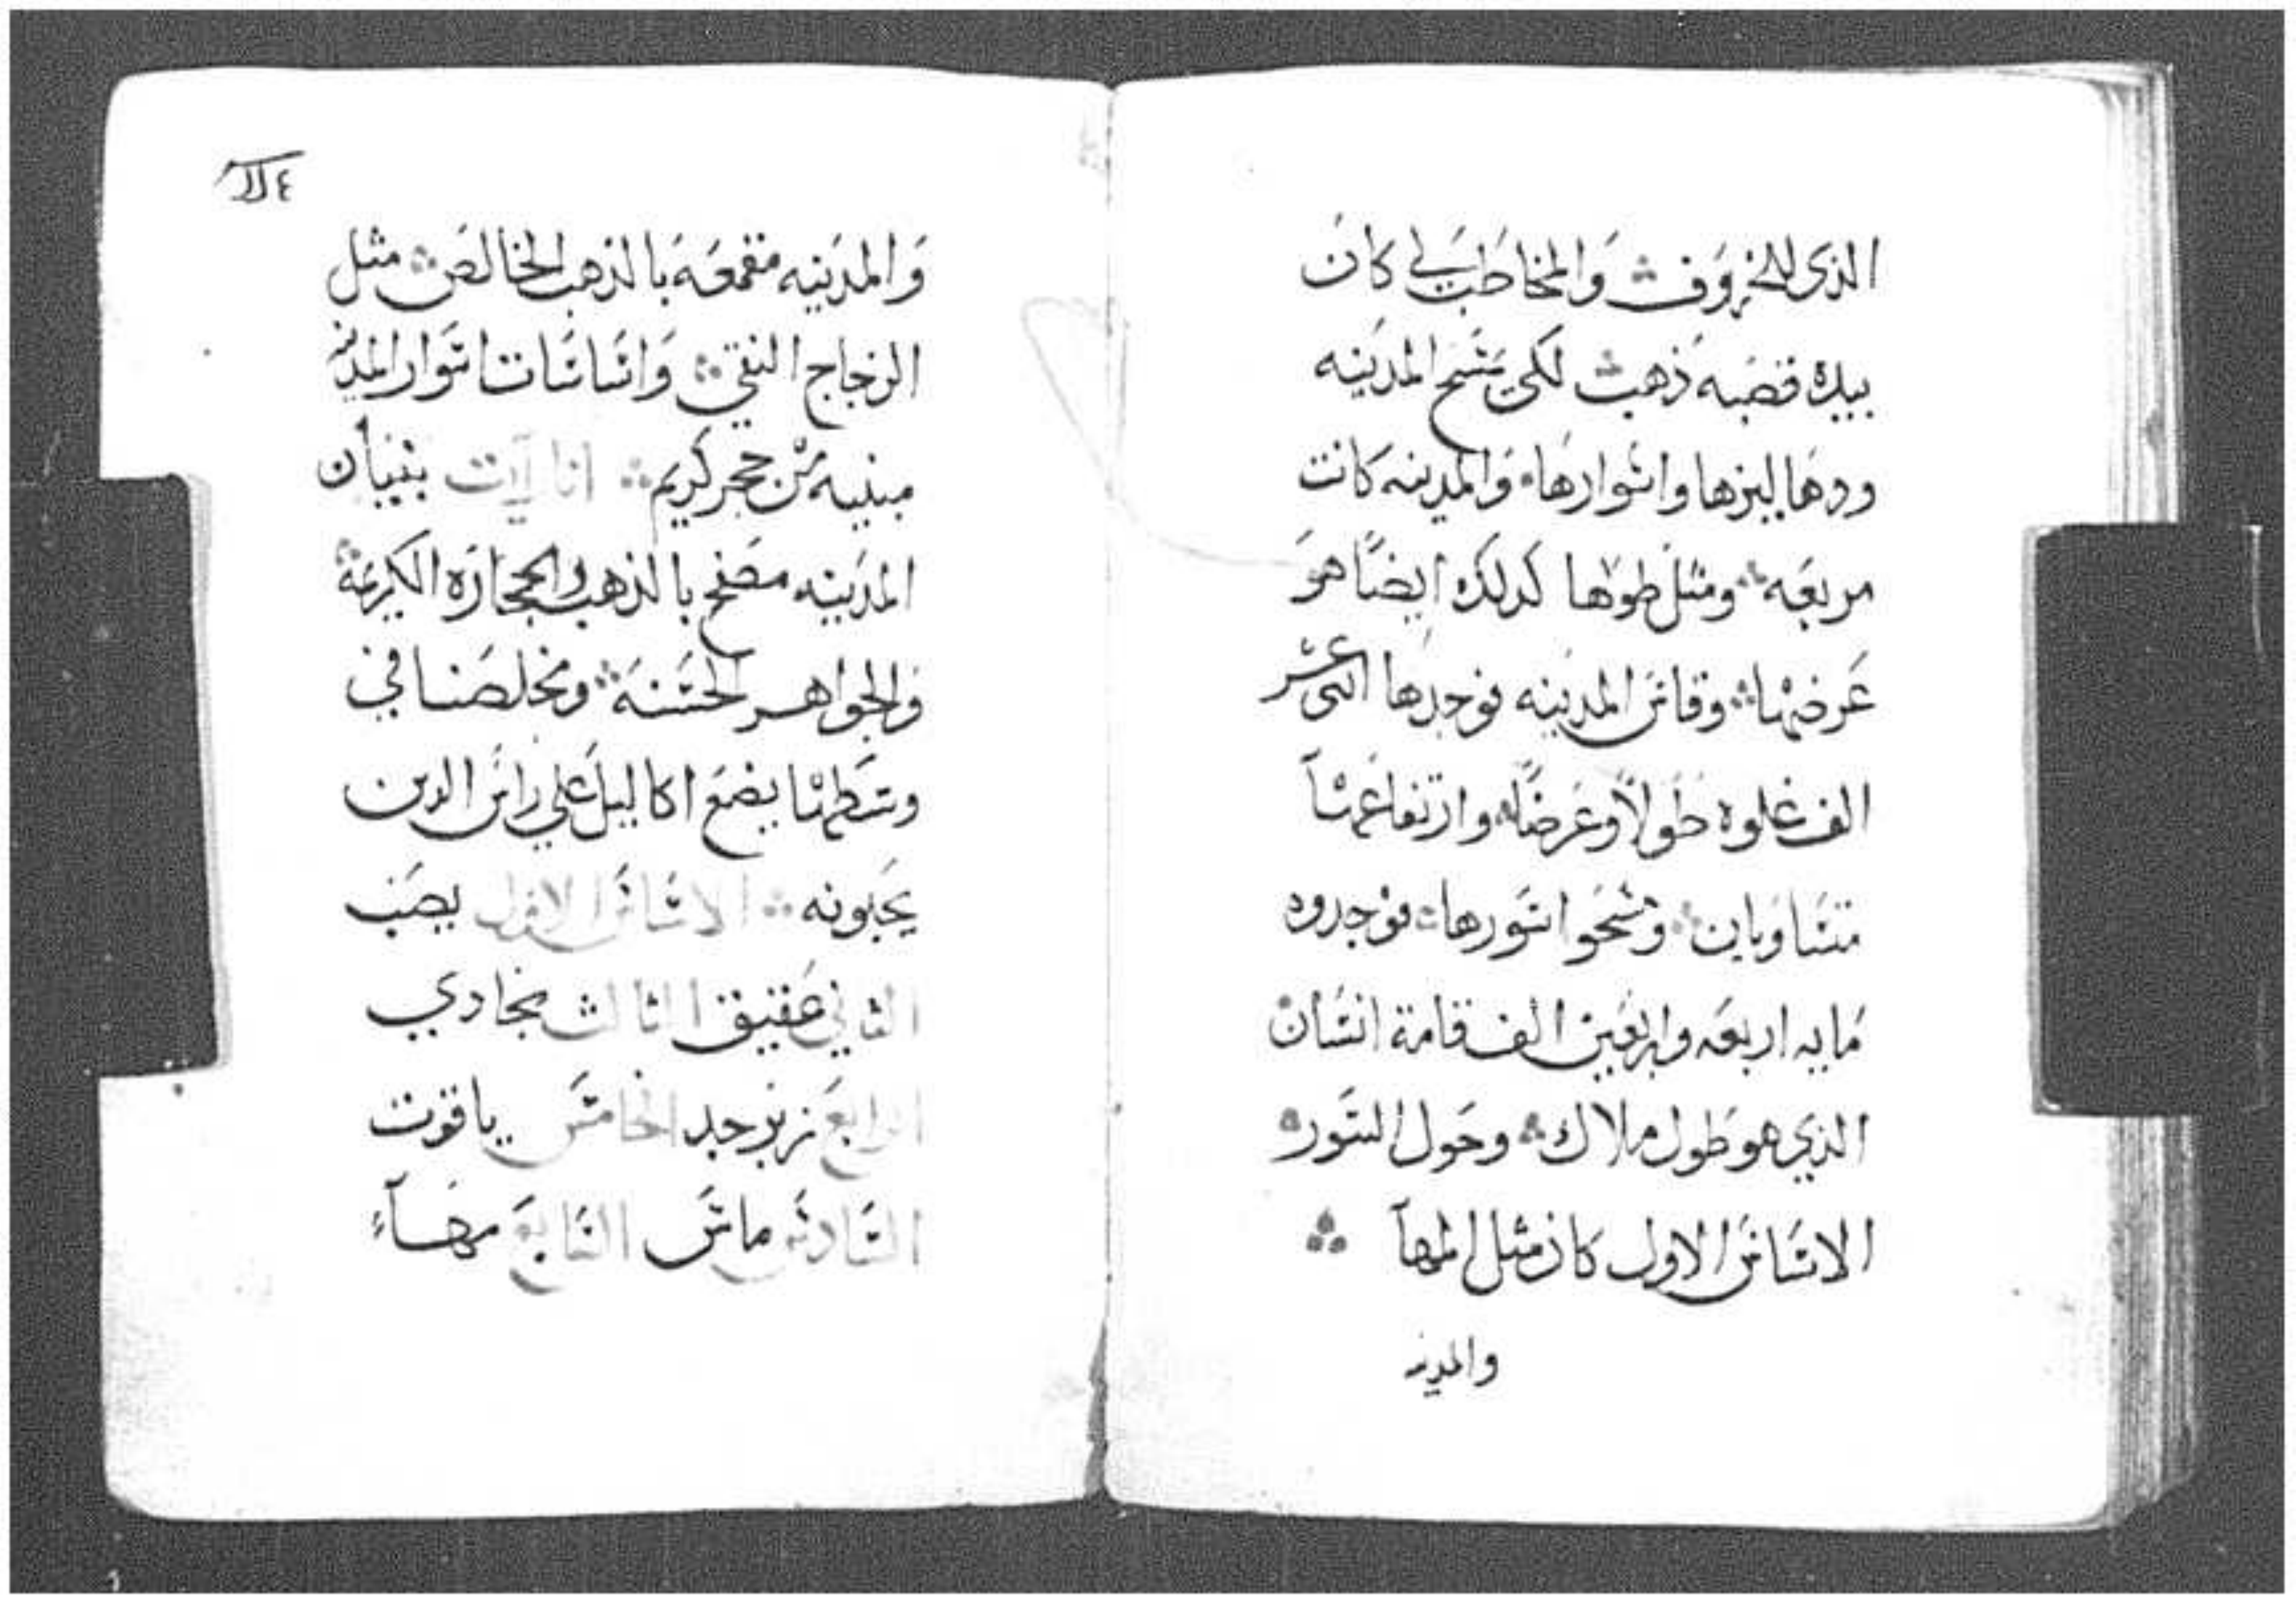 الذى للخروف والمخاطب لي كان
بيده قصبه ذهب لكي يمسح المدينه
ودرها ليزها واسوارها والمدينه كانت
مربعه ومثل طولها كدلك ايضًا هو
عرضها وقاس المدينه فوجدها اثنى عشر
الف غلوه طولاً وعرضًا وارتفاعهمآ
متساويان ومسحوا سورها فوجدوه
مايه اربعه واربعين الف قامة انسان
الذي هو طول ملاك وحول السور
الاساس الاول كان مثل المهآ
والمدينه
والمدينه مقمعه بالذهب الخالص مثل
الزجاج النقي واساسات اسوار المدينه
مبنيه من حجر كريم انا رايت بنيان
المدينه مصفح بالذهب والحجاره الكريمة
والجواهر الحسنة ومخلصنا في
وسطهما يضع اكاليل على راس الدين
يحبونه الاساس الاول يصب
الثاني عقيق الثالث بجادي
الرابع زبرجد الخامس ياقوت
السادس ماس السابع مهآء